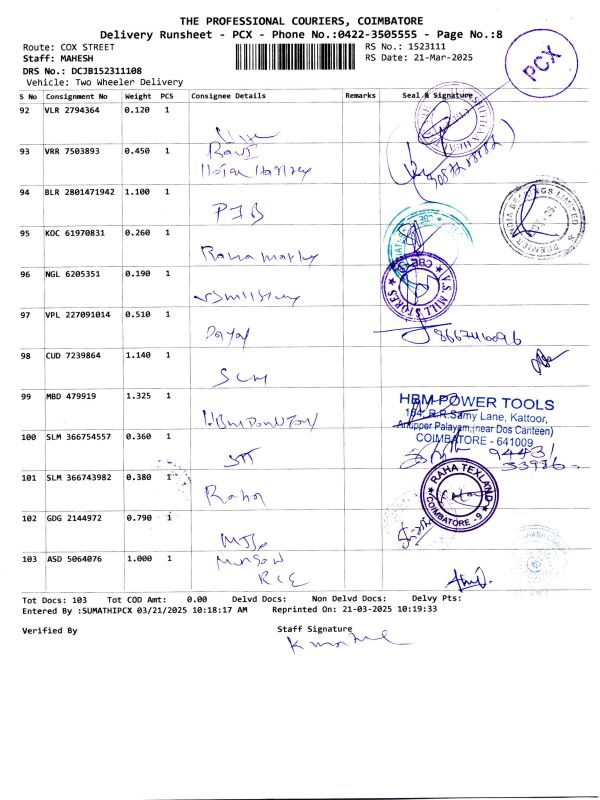 THE PROFESSIONAL COURIERS, COIMBATORE
Delivery Runsheet - PCX - Phone No.:0422-3505555 - Page No.:8
Route: COX STREET
RS No.: 1523111
Staff: MAHESH
RS Date: 21-Mar-2025
DRS No.: DCJB152311108
Vehicle: Two Wheeler Delivery
PCX
S No Consignment No Weight PCS Consignee Details Remarks Seal & Signature
92 VLR 2794364 0.120 1
93 VRR 7503893 0.450 1
94 BLR 2801471942 1.100 1
PREMIER BEARINGS LIMITED
95 KOC 61970831 0.260 1
96 NGL 6205351 0.190 1
V.S. MILL STORES
CBE
97 VPL 227091014 0.510 1
Dayal
8667410096
98 CUD 7239864 1.140 1
SCM
99 MBD 479919 1.325 1
HBM POWER TOOLS
194, R.R.Samy Lane, Kattoor,
Anupper Palayam,(near Dos Canteen)
COIMBATORE - 641009
100 SLM 366754557 0.360 1
9443/
33926
101 SLM 366743982 0.380 1
Raha
RAHA TEXLAND
COIMBATORE - 9
102 GDG 2144972 0.790 1
103 ASD 5064076 1.000 1
Tot Docs: 103 Tot COD Amt: 0.00 Delvd Docs: Non Delvd Docs: Delvy Pts:
Entered By :SUMATHIPCX 03/21/2025 10:18:17 AM Reprinted On: 21-03-2025 10:19:33
Verified By
Staff Signature